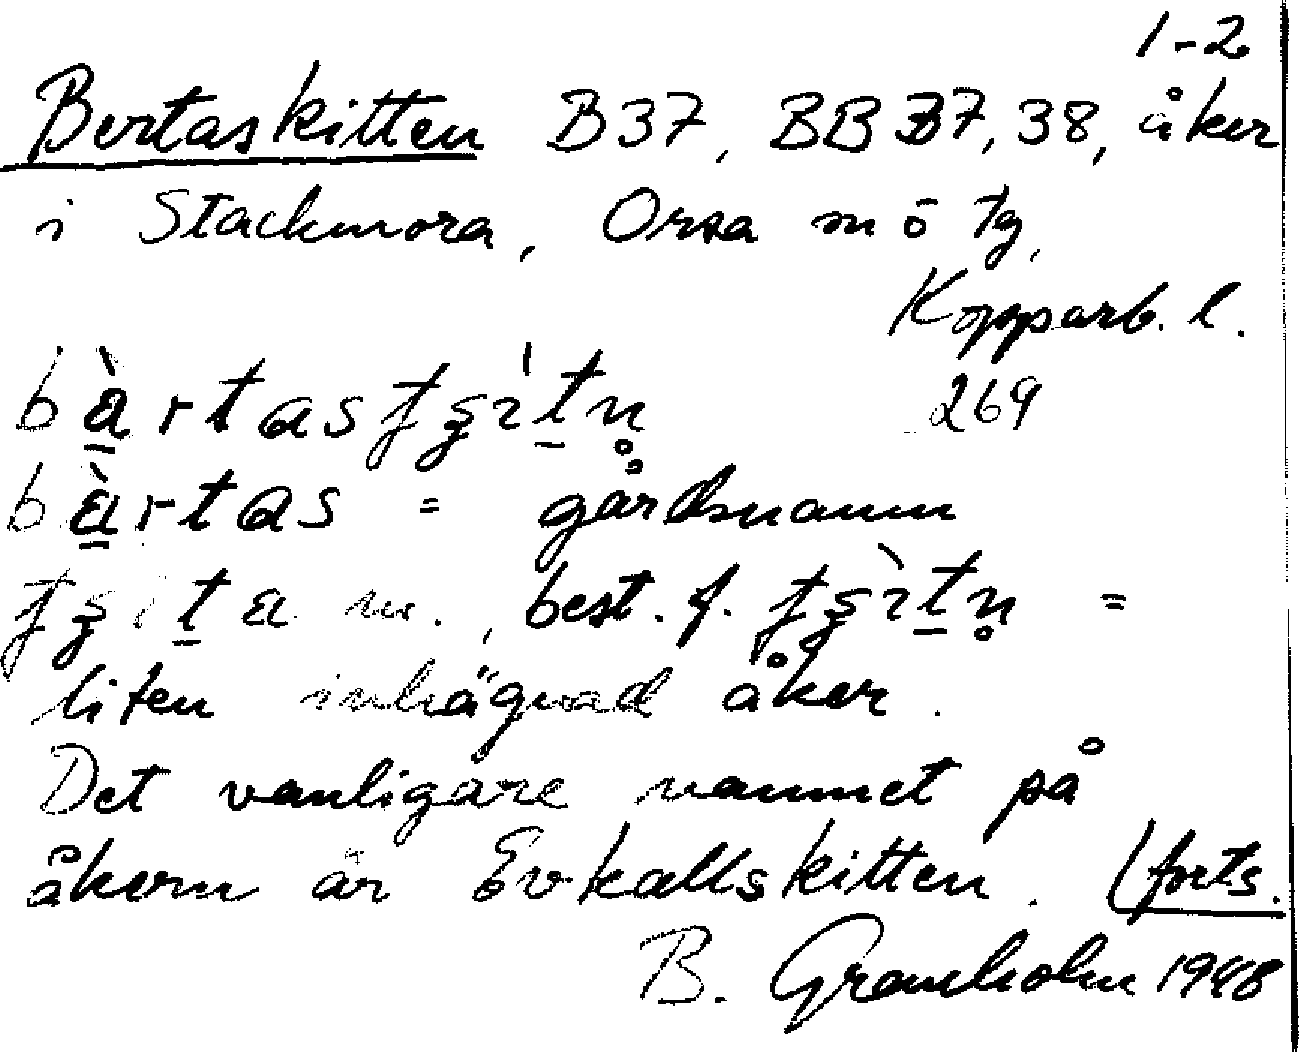 1-2
Bertaskitten B37, BB 37, 38, åker
i Stackmora, Orsa sn ö tg,
Kopparb. l.
bàrtasꞙʂı̀tn̥ 269
bàrtas = gårdsnamn
best. f. =
liten inhägnad åker.
Det vanligare namnet på
åkern är Evkallskitten. (forts.
B. Granholm 1948